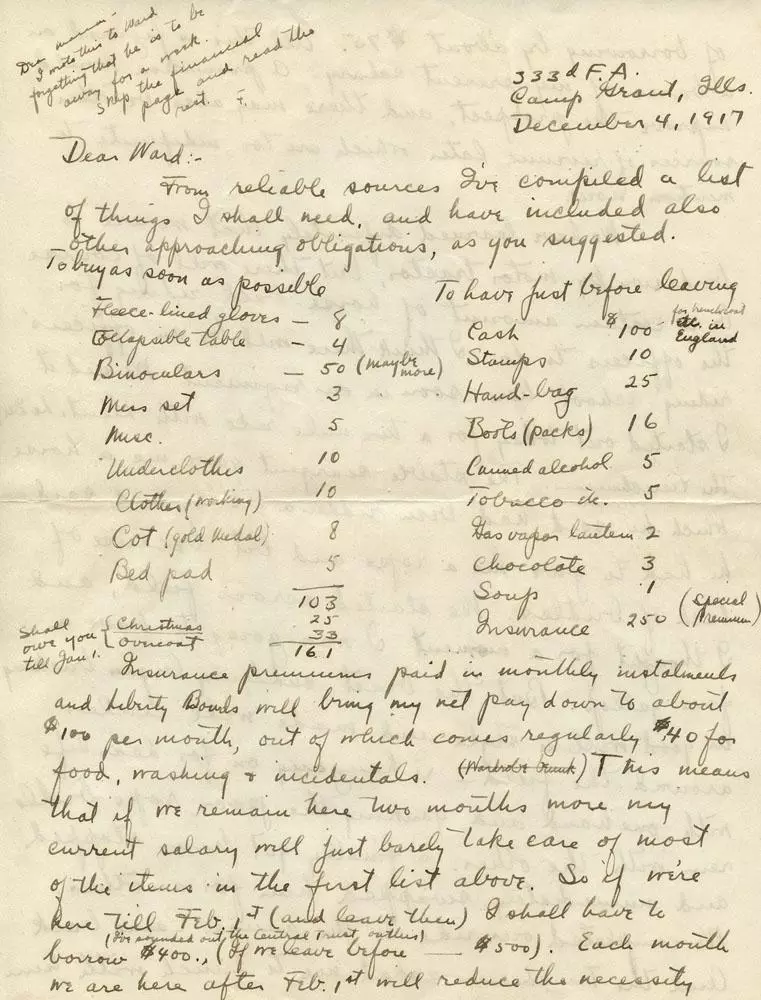 Dear mamma -
I wrote this to Ward
forgetting that he is to be
away for a week.
Snip the financial
page and read the
rest. F.
333d F.A.
Camp Grant, Ills.
December 4, 1917
Dear Ward:-
From reliable sources I've compiled a list
of things I shall need, and have included also
other approaching obligations, as you suggested.
To buy as soon as possible
Fleece-lined gloves — 8
Collapsible table — 4
Binoculars — 50 (maybe more)
Mess set 3
Misc. 5
Underclothes 10
Clothes (working) 10
Cot (gold medal) 8
Bed pad 5
103
Shall owe you till Jan 1. { Christmas 25
Overcoat 33
161
To have just before leaving
Cash $100 for trenchcoat etc. in England
Stamps 10
Hand-bag 25
Boots (packs) 16
Canned alcohol 5
Tobacco etc. 5
Gas vapor lantern 2
Chocolate 3
Soup 1
Insurance 250 (special premium)
Insurance premiums paid in monthly instalments
and Liberty Bonds will bring my net pay down to about
$100 per month, out of which comes regularly $40 for
food, washing + incidentals. (Wardrobe trunk) This means
that if we remain here two months more my
current salary will just barely take care of most
of the items in the first list above. So if we're
here till Feb. 1st (and leave then) I shall have to
(I've sounded out the Central Trust, outlus)
borrow $400., (If we leave before — $500). Each month
we are here after Feb. 1st will reduce the necessity